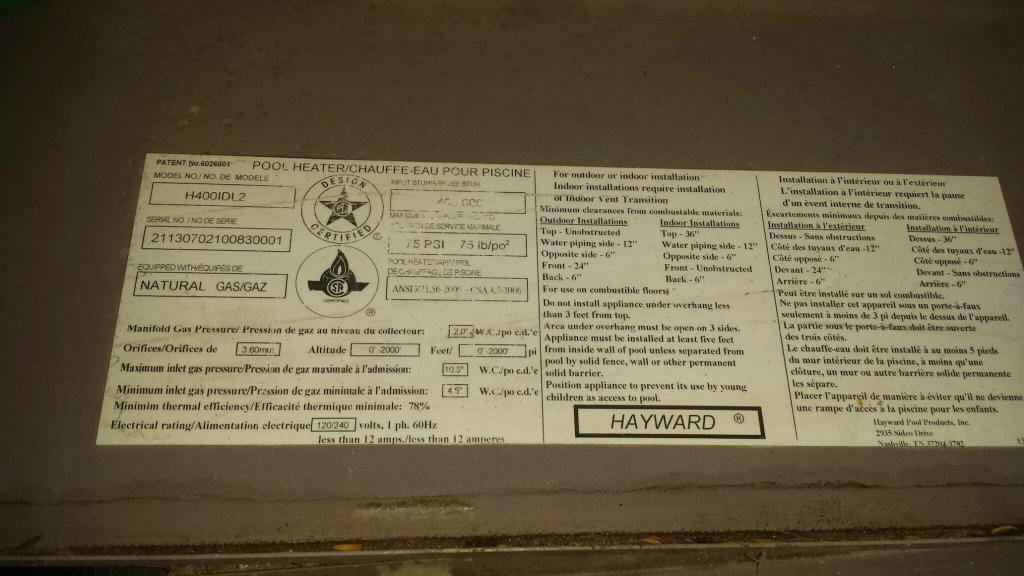 PATENT No.6026804
POOL HEATER/CHAUFFE-EAU POUR PISCINE
MODEL NO./ NO. DE MODELE
H400IDL2
SERIAL NO. / NO DE SÉRIE
21130702100830001
EQUIPPED WITH/ÉQUIPÉS DE
NATURAL GAS/GAZ
DESIGN
CERTIFIED
®
CERTIFIED
®
INPUT BTUH/
400,000
DE SERVICE MAXIMALE
75 PSI 75 lb/po²
POOL HEATER/APPAREIL
DE CHAUFFAGE DE PISCINE
ANSI Z21.56-2006 - CSA 4.7-2006
Manifold Gas Pressure/ Pression de gaz au niveau du collecteur: 2.0" W.C/po c.d.'e
Orifices/Orifices de 3.60mm Altitude 0'-2000' Feet/ 0'-2000' pi
Maximum inlet gas pressure/Pression de gaz maximale à l'admission: 10.5" W.C./po c.d.'e
Minimum inlet gas pressure/Pression de gaz minimale à l'admission: 4.5" W.C./po c.d.'e
Minimim thermal efficiency/Efficacité thermique minimale: 78%
Electrical rating/Alimentation electrique 120/240 volts, 1 ph. 60Hz
less than 12 amps./less than 12 amperes
For outdoor or indoor installation
Indoor installations require installation
of Indoor Vent Transition
Minimum clearances from combustable materials:
Outdoor Installations Indoor Installations
Top - Unobstructed Top - 36"
Water piping side - 12" Water piping side - 12"
Opposite side - 6" Opposite side - 6"
Front - 24" Front - Unobstructed
Back - 6" Back - 6"
For use on combustible floors
Do not install appliance under overhang less
than 3 feet from top.
Area under overhang must be open on 3 sides.
Appliance must be installed at least five feet
from inside wall of pool unless separated from
pool by solid fence, wall or other permanent
solid barrier.
Position appliance to prevent its use by young
children as access to pool.
HAYWARD ®
Installation à l'intérieur ou à l'extérieur
L'installation à l'intérieur requiert la pause
d'un évent interne de transition.
Écartements minimaux depuis des matières combustibles:
Installation à l'extérieur Installation à l'intérieur
Dessus - Sans obstructions Dessus - 36"
Côté des tuyaux d'eau -12" Côté des tuyaux d'eau -12"
Côté opposé - 6" Côté opposé - 6"
Devant - 24" Devant - Sans obstructions
Arrière - 6" Arrière - 6"
Peut être installé sur un sol combustible.
Ne pas installer cet appareil sous un porte-à-faux
seulement à moins de 3 pi depuis le dessus de l'appareil.
La partie sous le porte-à-faux doit être ouverte
des trois côtés.
Le chauffe-eau doit être installé à au moins 5 pieds
du mur intérieur de la piscine, à moins qu'une
clôture, un mur ou autre barrière solide permanente
les sépare.
Placer l'appareil de manière à éviter qu'il ne devienne
une rampe d'accès à la piscine pour les enfants.
Hayward Pool Products, Inc.
2935 Sidco Drive
Nashville, TN 37204-3782